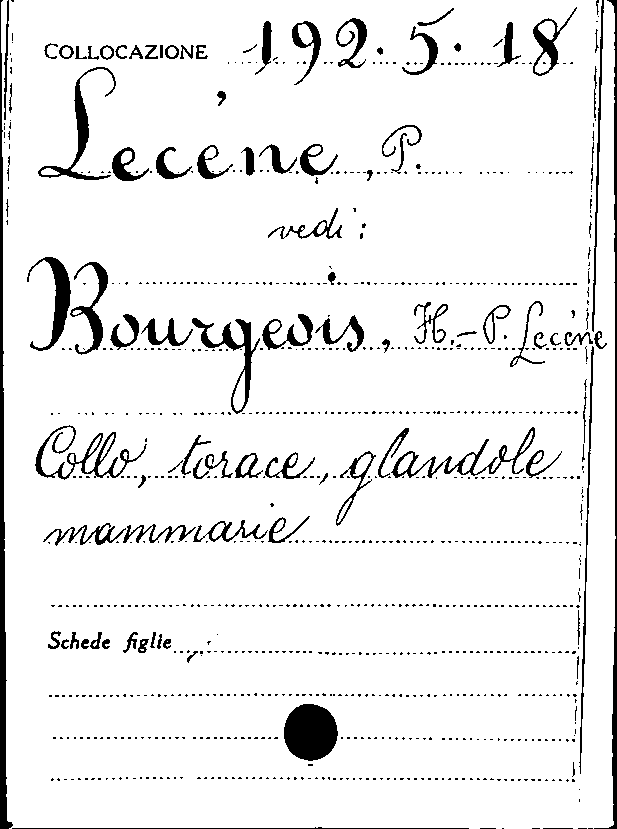 COLLOCAZIONE 192.5.18
Lecéne, P.
vedi:
Bourgeois, H.-P. Lecéne
Collo, torace, glandole
mammarie
Schede figlie